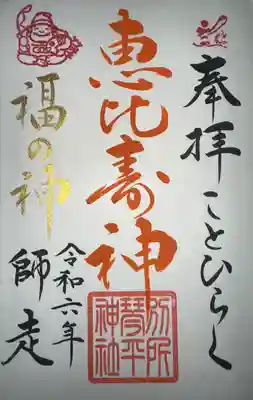 奉拝 ことひらく
恵比寿神
別所琴平神社
福の神
令和六年
師走